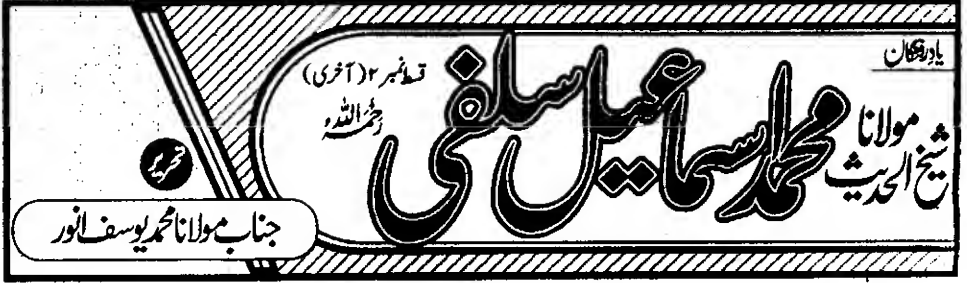 یادِ رفتگان
شیخ الحدیث مولانا محمد اسماعیل سلفی رحمہ اللہ
قسط نمبر ۲ (آخری)
تحریر
جناب مولانا محمد یوسف انور